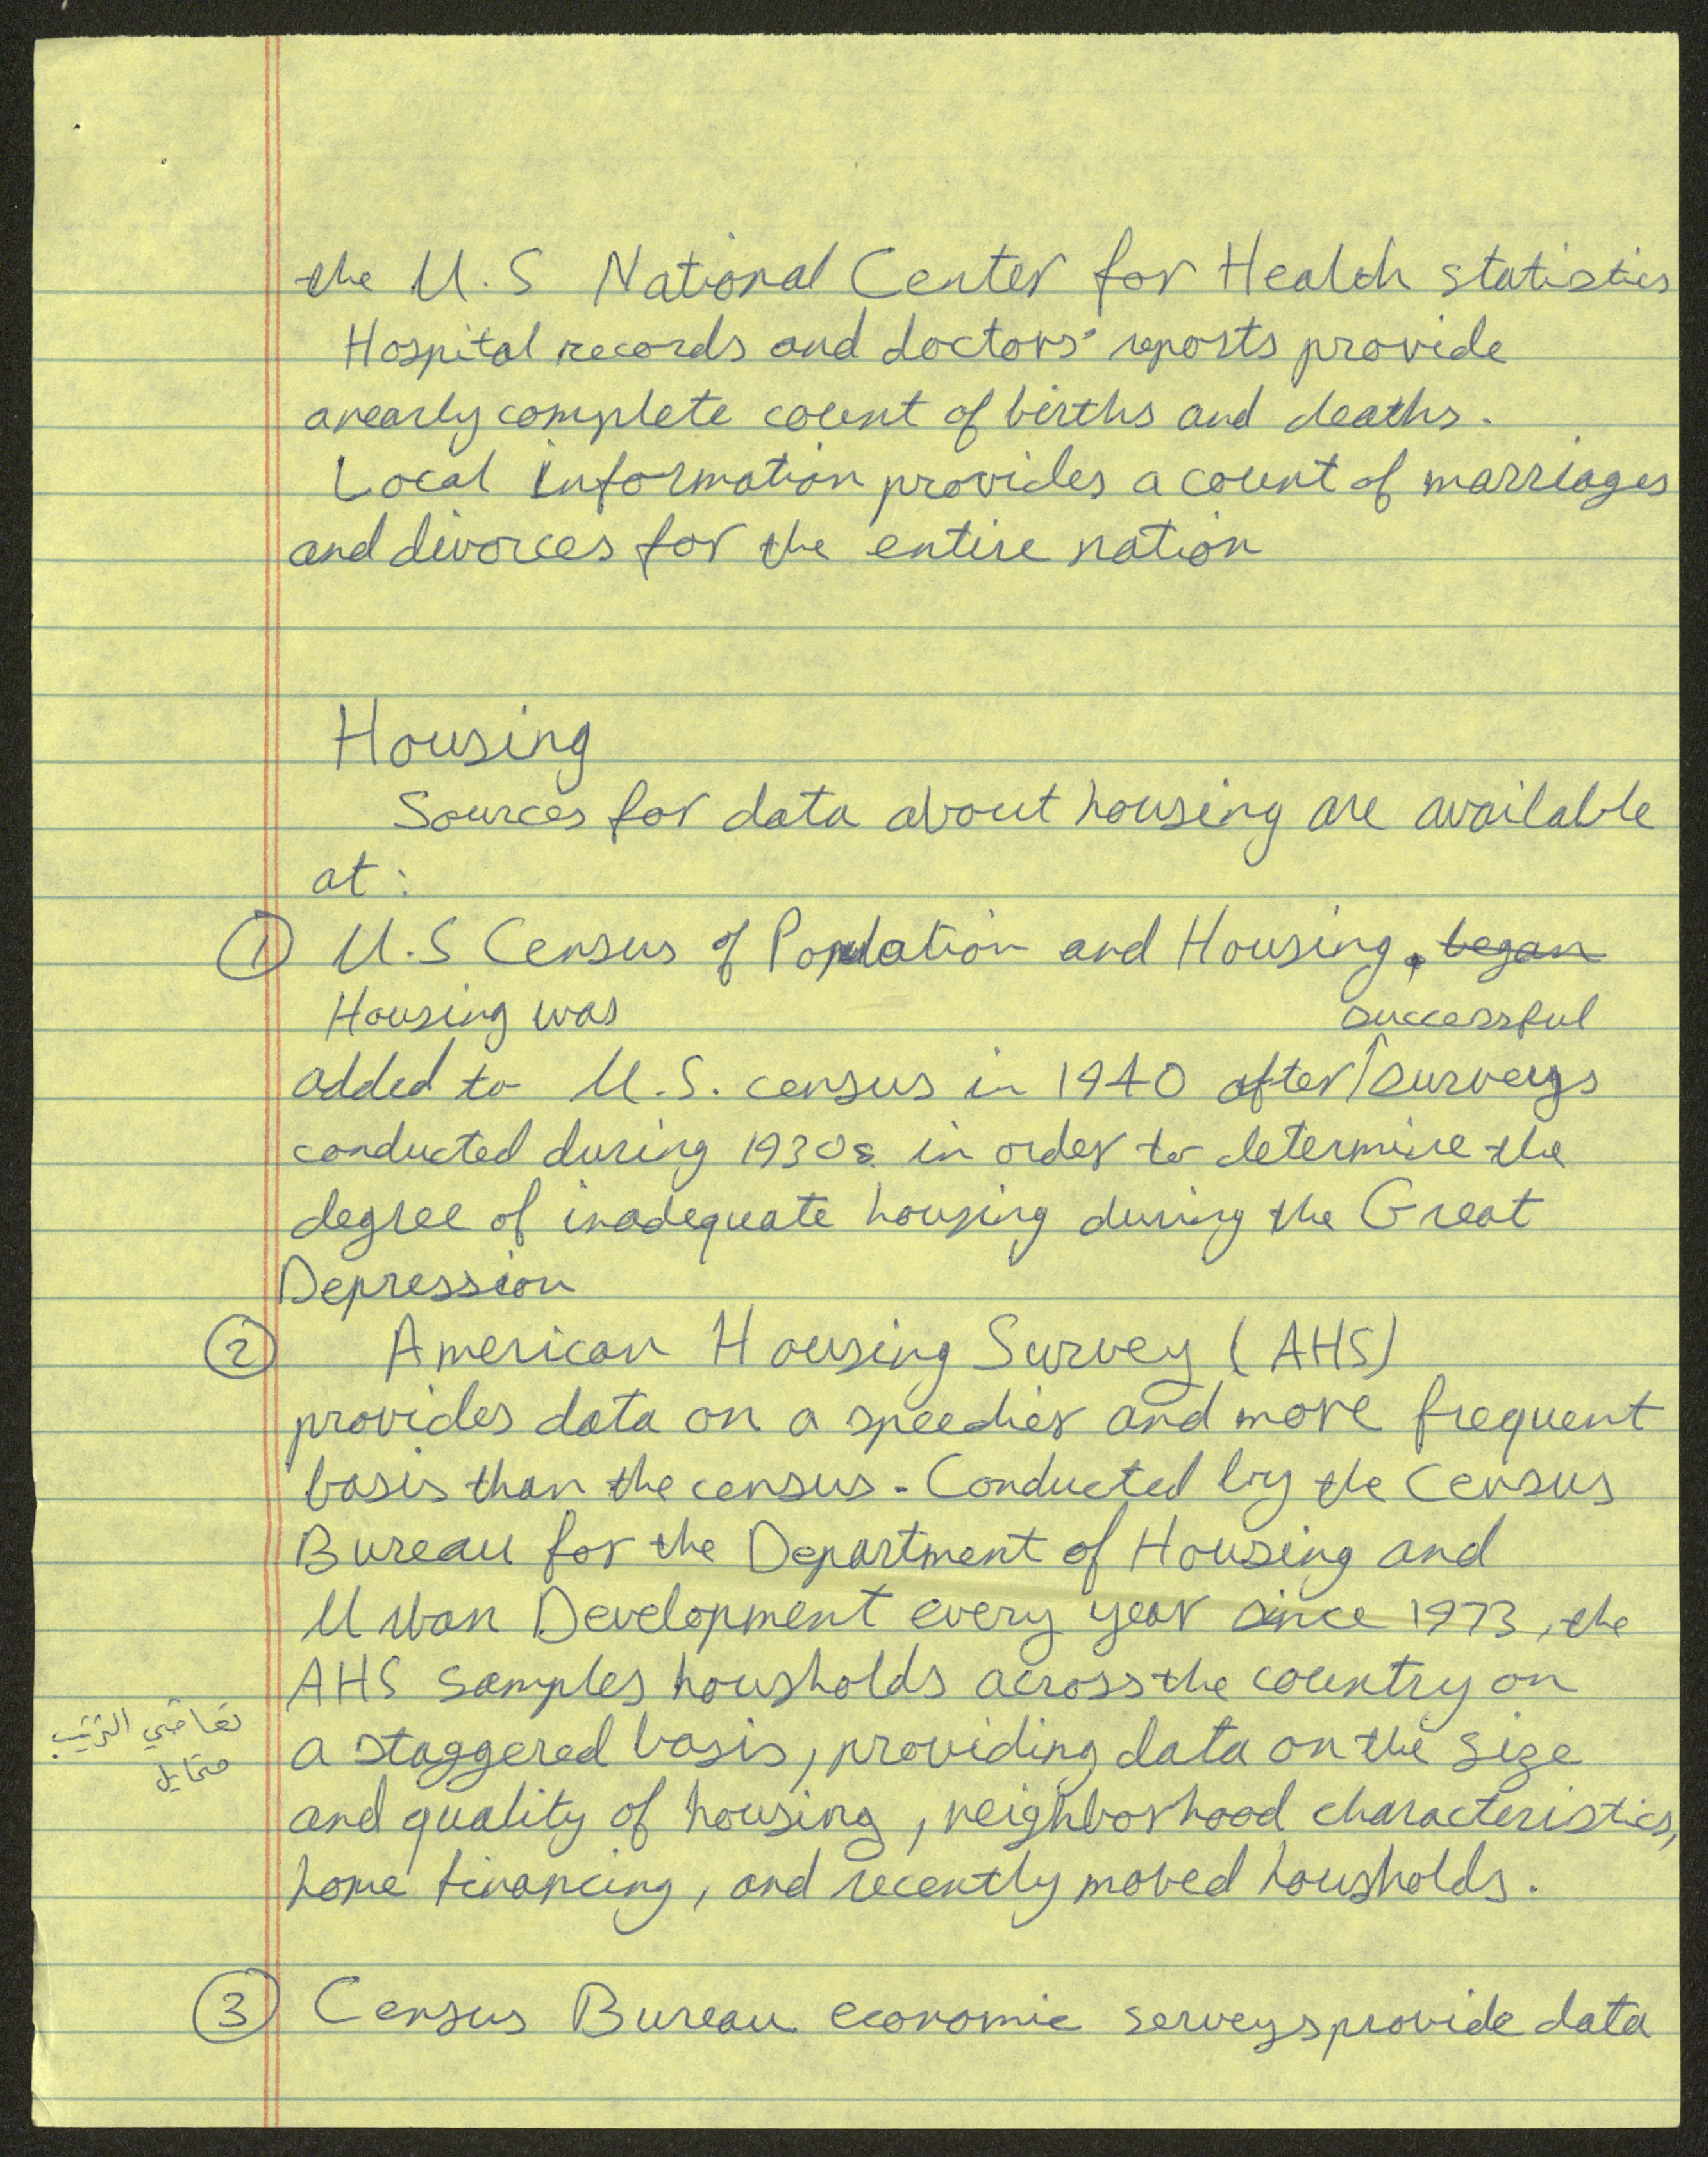 the U.S National Center for Health statistics
Hospital records and doctors' reports provide
a nearly complete count of births and deaths.
Local information provides a count of marriages
and divorces for the entire nation
Housing
Sources for data about housing are available
at:
① U.S Census of Population and Housing, began
Housing was successful
added to U.S. census in 1940 after surveys
conducted during 1930s in order to determine the
degree of inadequate housing during the Great
Depression
② American Housing Survey (AHS)
provides data on a speedier and more frequent
basis than the census. Conducted by the Census
Bureau for the Department of Housing and
Urban Development every year since 1973, the
AHS samples housholds across the country on
a staggered basis, providing data on the size
and quality of housing, neighborhood characteristics,
home financing, and recently moved housholds.
الترتيب
متمايل
③ Census Bureau economic serveys provide data